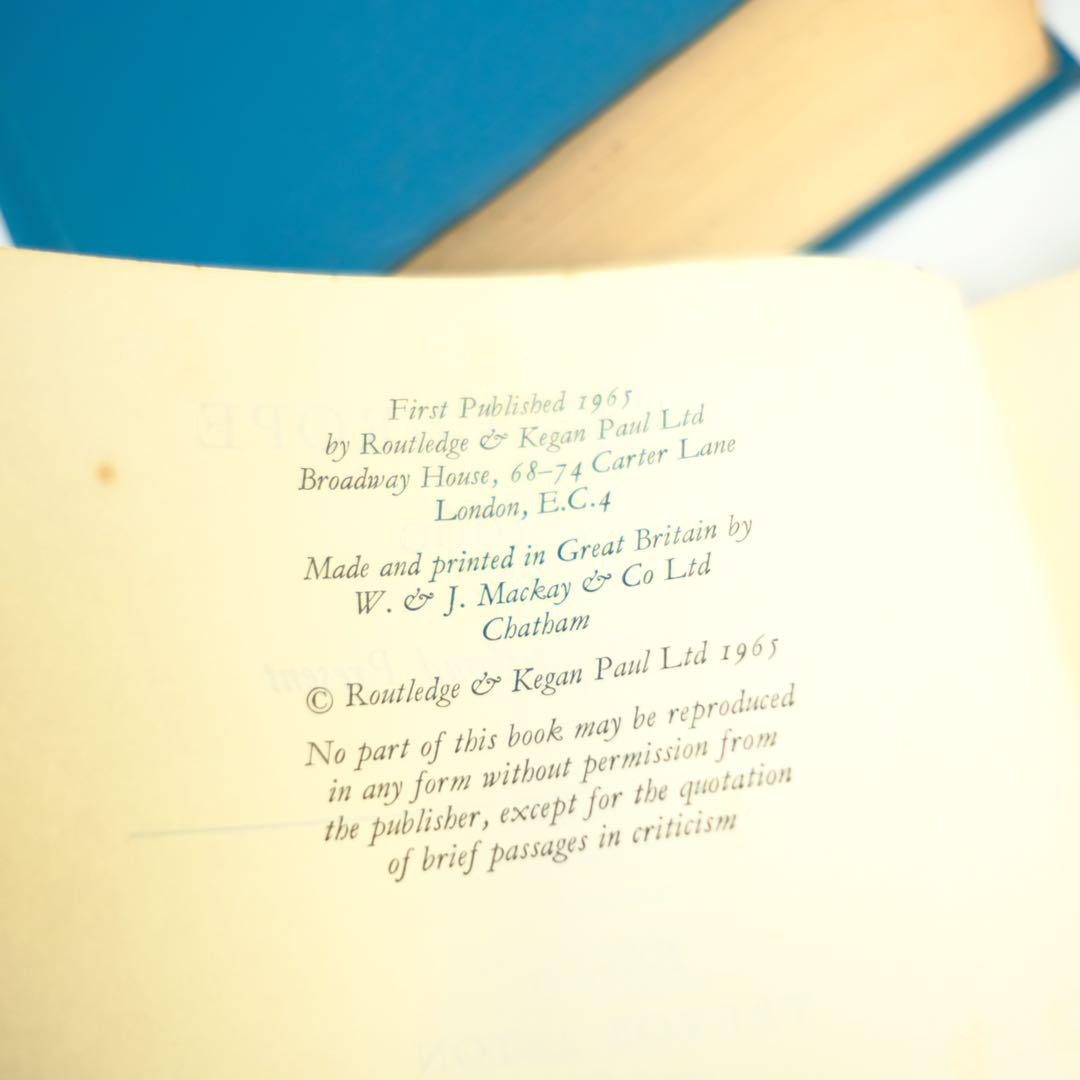 First Published 1965
by Routledge & Kegan Paul Ltd
Broadway House, 68–74 Carter Lane
London, E.C.4
Made and printed in Great Britain by
W. & J. Mackay & Co Ltd
Chatham
© Routledge & Kegan Paul Ltd 1965
No part of this book may be reproduced
in any form without permission from
the publisher, except for the quotation
of brief passages in criticism